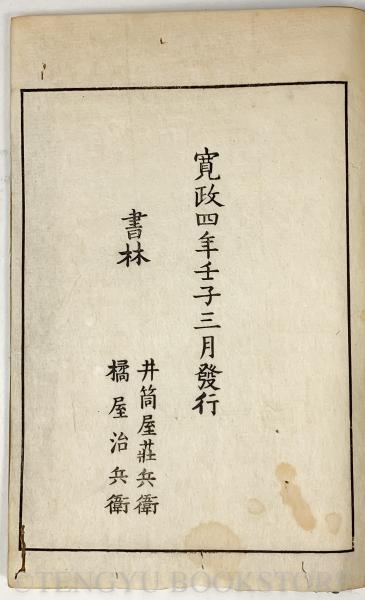 寛政四年壬子三月發行
書林
井筒屋莊兵衛
橘屋治兵衛
©TENGYU BOOKSTORE